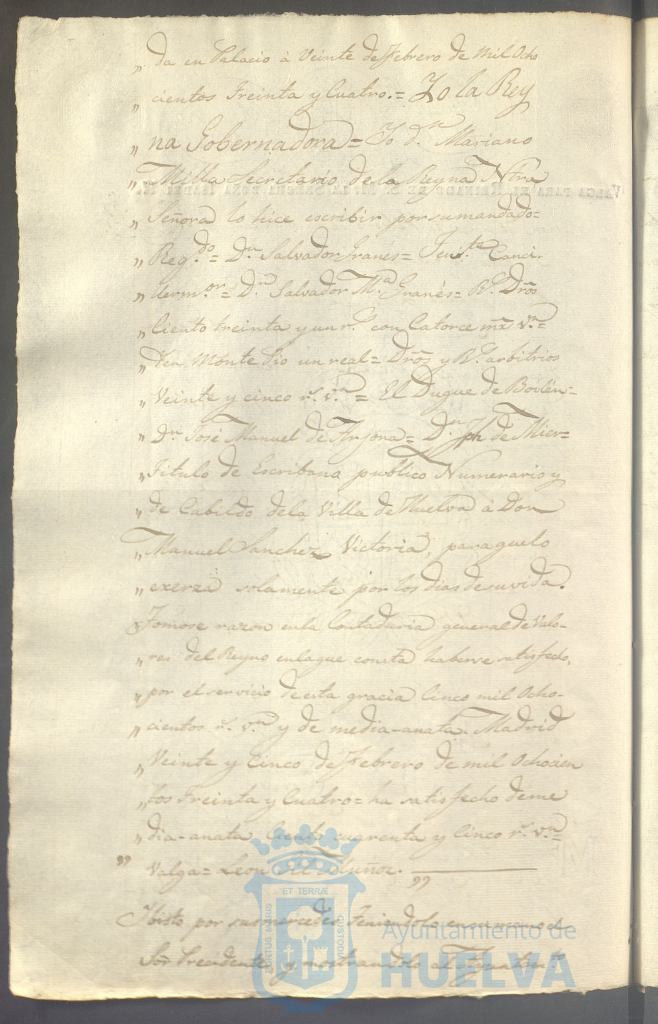 „ da en Palacio à Veinte de Febrero de Mil Ocho
„ cientos Treinta y Cuatro.= Yo la Rey
„ na Gobernadora= Yo dⁿ Mariano
„ Milla Secretario de la Reyna Ntra
„ Señora lo hice escribir por su mandado=
„ Reg.do= Dn Salvador Granés= Tente Canci.
„ Ller m.or= Dn Salvador M.a Granés= Rl. Dros
„ Ciento treinta y un r.s con Catorce mrs vn=
„ Monte Pio un real= Dros y Rl. arbitrios
„ Veinte y cinco r.s vn= El Duque de Bailén=
„ Dn José Manuel de Arjona= Dn Jph de Mier=
„ Titulo de Escribano publico Numerario y
„ de Cabildo de la Villa de Huelva à Don
„ Manuel Sanchez Victoria, para que lo
„ exerza solamente por los dias de su vida.
„ Tomose razon en la Contaduria general de Valo-
„ res del Reyno en la que consta haberse satisfecho,
„ por el servicio de esta gracia Cinco mil Ocho-
„ cientos r.s vn y de media-anata. Madrid
„ Veinte y Cinco de Febrero de mil Ochocien
„ tos Treinta y Cuatro= ha satisfecho de me
„ dia-anata Ciento cuarenta y Cinco r.s vn=
„ Valga= Leon Muñoz. „
Y visto por sus mercedes
Sōr Presidente y mostrandolo al Ayuntamiento
ET TERRÆ
PORTUS MARIS
CUSTODIA
Ayuntamiento de
HUELVA